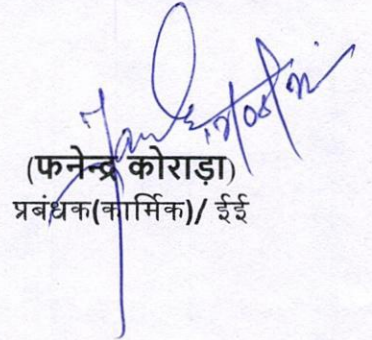 (फनेन्द्र कोराड़ा)
प्रबंधक(कार्मिक)/ ईई